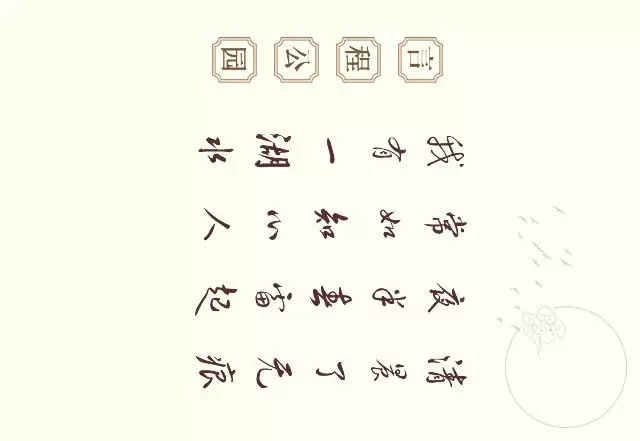 言程公园
我有一湖水
常如知心人
夜半春雷起
清晨了无痕